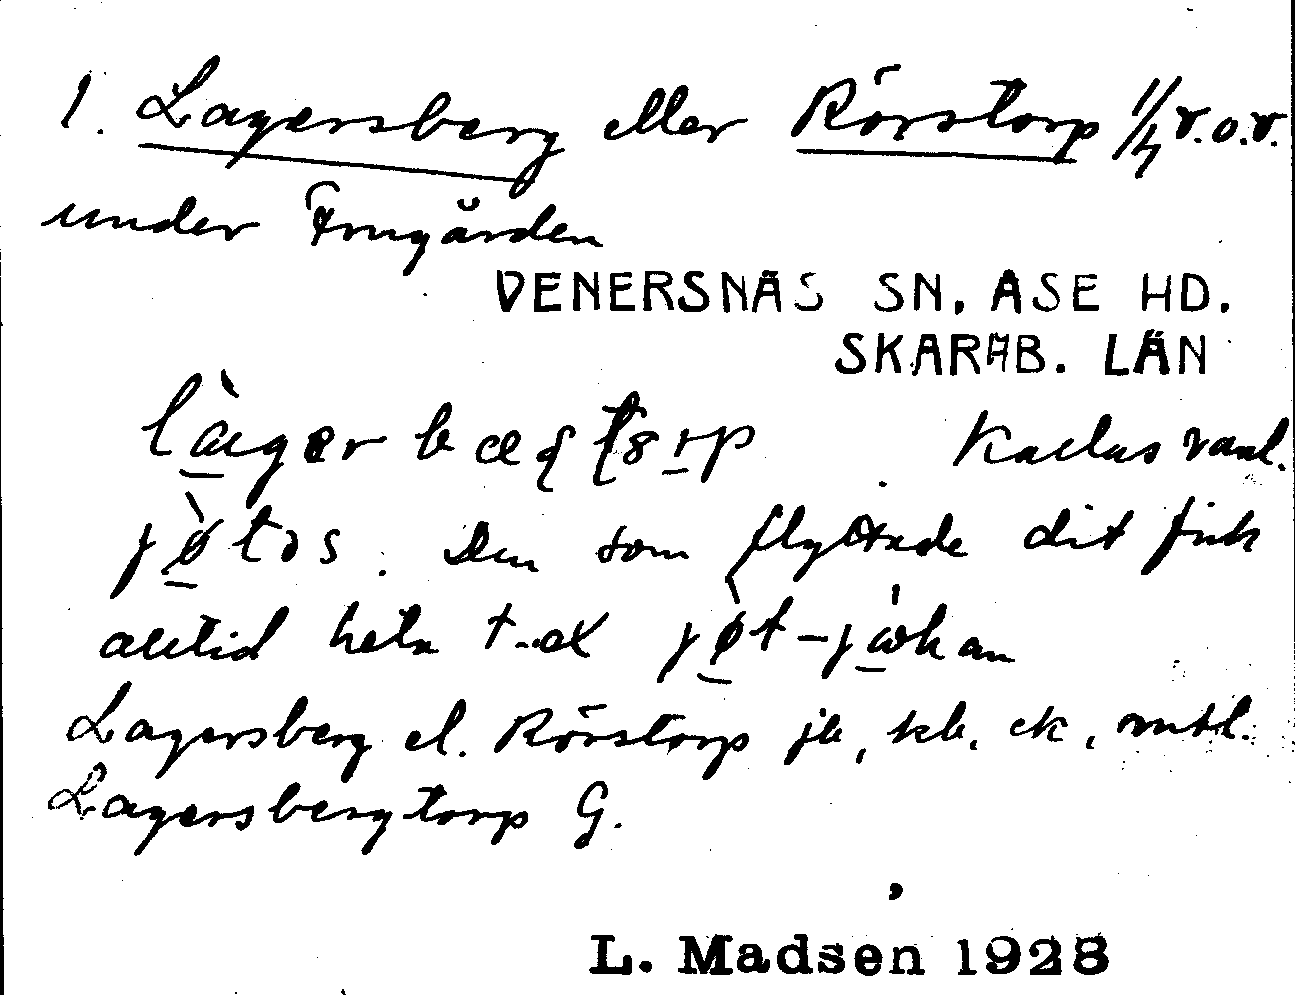 1. Lagersberg eller Rörstorp 1/4 r.o.r.
under Frugården
VENERSNÄS SN. ÅSE HD.
SKARAB. LÄN
Kallas vanl.
Den som flyttade dit fick
alltid heta t.ex
Lagersberg el. Rörstorp jb, kb, ek, mtl.
Lagersbergtorp G.
L. Madsen 1928